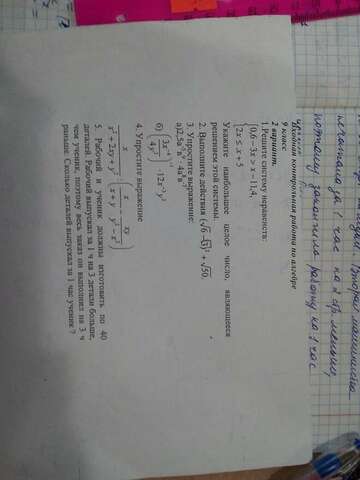 Входная контрольная работа по алгебре
9 класс
2 вариант.
1.Решите систему неравенств:
{0,6 - 3x > x - 11,4,
{2x ≤ x + 5
Укажите наибольшее целое число, являющееся
решением этой системы.
2. Выполните действия (√6 - √3)² + √50.
3. Упростите выражение:
б) (3x⁻¹ / 4y⁻³)⁻¹
4. Упростите выражение
x / (x² + 2xy + y²) : (x / (x + y) - xy / (y² - x²))
5. Рабочий и ученик должны изготовить по 40
деталей. Рабочий выпускал за 1 ч на 3 детали больше,
чем ученик, поэтому весь заказ он выполнил на 3 ч
раньше. Сколько деталей выпускал за 1 час ученик ?
печатала за 1 час на
меньше,
поэтому закончила работу на 1 час